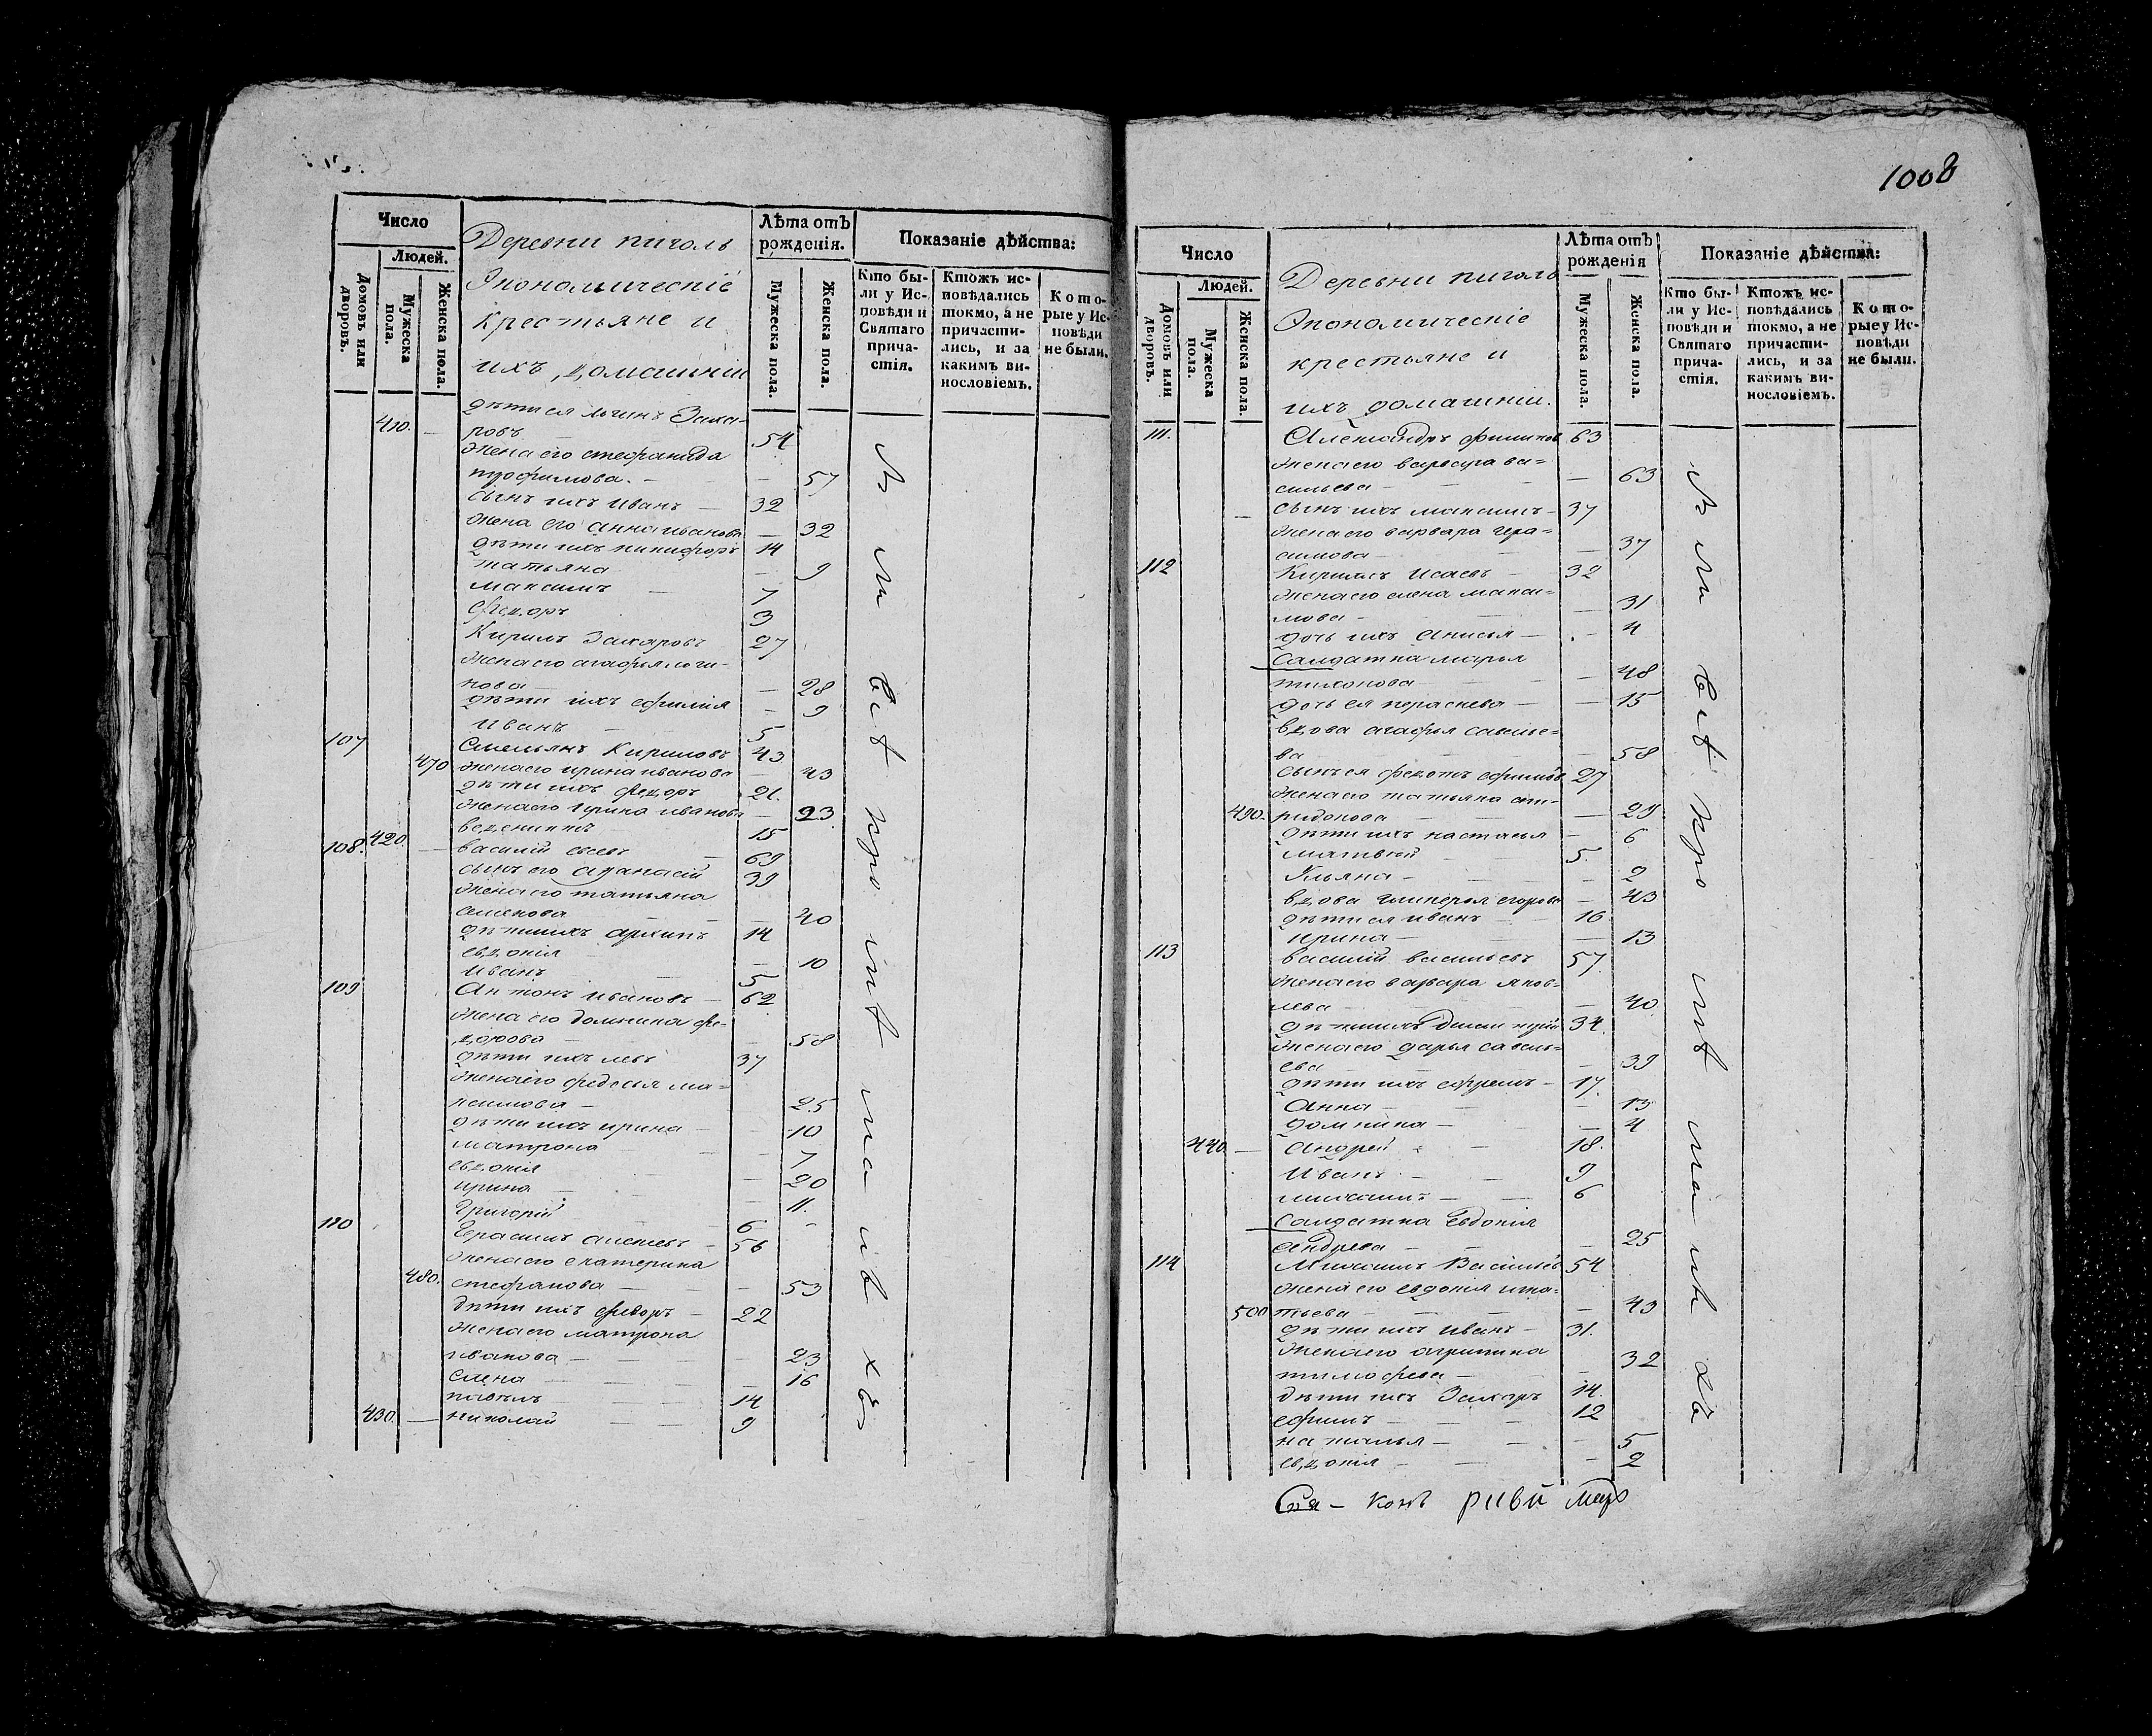 Число
Людей.
Домовъ или дворовъ.
Мужеска пола.
Женска пола.
Деревни пиголь
Экономическіе
крестьяне и
ихъ домашніи
Лѣта отъ рожденія.
Мужеска пола.
Женска пола.
Показаніе дѣйства:
Кто бы-
ли у Ис-
повѣди и
Святаго
прича-
стія.
Ктожъ ис-
повѣдались
токмо, а не
причасти-
лись, и за
какимъ ви-
нословіемъ.
Кото-
рые у Ис-
повѣди
не были.
410. — Заха-
ровъ 54
жена его стефанида
трофимова. — — 57
сынъ ихъ иванъ — 32
жена его анна иванова — 32
дѣти ихъ никифоръ 14
татьяна — 9
максимъ — 7
ѳедоръ 3
Кирилъ Захаровъ 27
жена его агафья логи-
нова — — 28
дѣти ихъ ефимія — 9
иванъ — 5
107 Емельянъ Кириловъ 43
470 жена его ирина иванова — 43
дѣти ихъ ѳедоръ 21.
жена его ирина иванова — 23
веденихтъ 15
108. 420. — василій евсевъ 69
сынъ его афанасій 39
жена его татьяна
семенова — 40
дѣти ихъ архипъ 14
евдокія — 10
иванъ 5
109 Антонъ ивановъ — 62
жена его домникиа фе-
дорова — 58
дѣти ихъ левъ 37
жена его федосья ма-
ксимова — 25
дѣти ихъ ирина — 10
матрона — 7
евдокія — 20
ирина — 11.
Григорій 6 —
110 Герасимъ алексѣевъ — 56
жена его екатерина
480. стефанова — — 53
дѣти ихъ ѳедоръ — 22
жена его матрона
иванова — 23
елена — 16
павелъ 14
430. — николай 9
1008
Число
Людей.
Домовъ или дворовъ.
Мужеска пола.
Женска пола.
Деревни пиголь
Экономическіе
крестьяне и
ихъ домашніи.
Лѣта отъ рожденія
Мужеска пола.
Женска пола.
Показаніе дѣйствія:
Кто бы-
ли у Ис-
повѣди и
Святаго
прича-
стія.
Ктожъ ис-
повѣдались
токмо, а не
причасти-
лись, и за
какимъ ви-
нословіемъ.
Кото-
рые у Ис-
повѣди
не были.
111. Александръ 63
жена его варвара ва=
сильева — — 63
сынъ ихъ максимъ — 37
жена его варвара гера=
симова — — 37
112 Кирилъ Исаевъ — 32
жена его елена макси=
мова — — 31
дочь ихъ Анисья — — 4
Салдатка марья
тихонова — — 48
дочь ея параскева — — 15
вдова агафья савелье=
ва — — 58
сынъ ея ѳедотъ ефимовъ 27
жена его татьяна спи=
490. ридонова — — 29
дѣти ихъ настасья — 6
матвѣй — 5.
Ульяна — — 2
вдова гликерья егорова — 43
дѣти ея иванъ — 16
ирина — — 13
113 василій васильевъ 57.
жена его варвара яков-
лева — — 40
дѣти ихъ 34.
жена его дарья савель=
ева — — 39
дѣти ихъ ефремъ — 17.
Анна — — 13
домника — — 4
440. — Андрей — 18.
иванъ — 9
михаилъ — 6
Салдатка Евдокія
андреева — — 25
114 Михаилъ Васильевъ 54
жена его евдокія игна-
500 тьева — — 43
дѣти ихъ иванъ — 31.
жена его агрипина
тимофеева — 32
дѣти ихъ Захаръ 14.
ефимъ — 12
наталья — — 5
евдокія — — 2